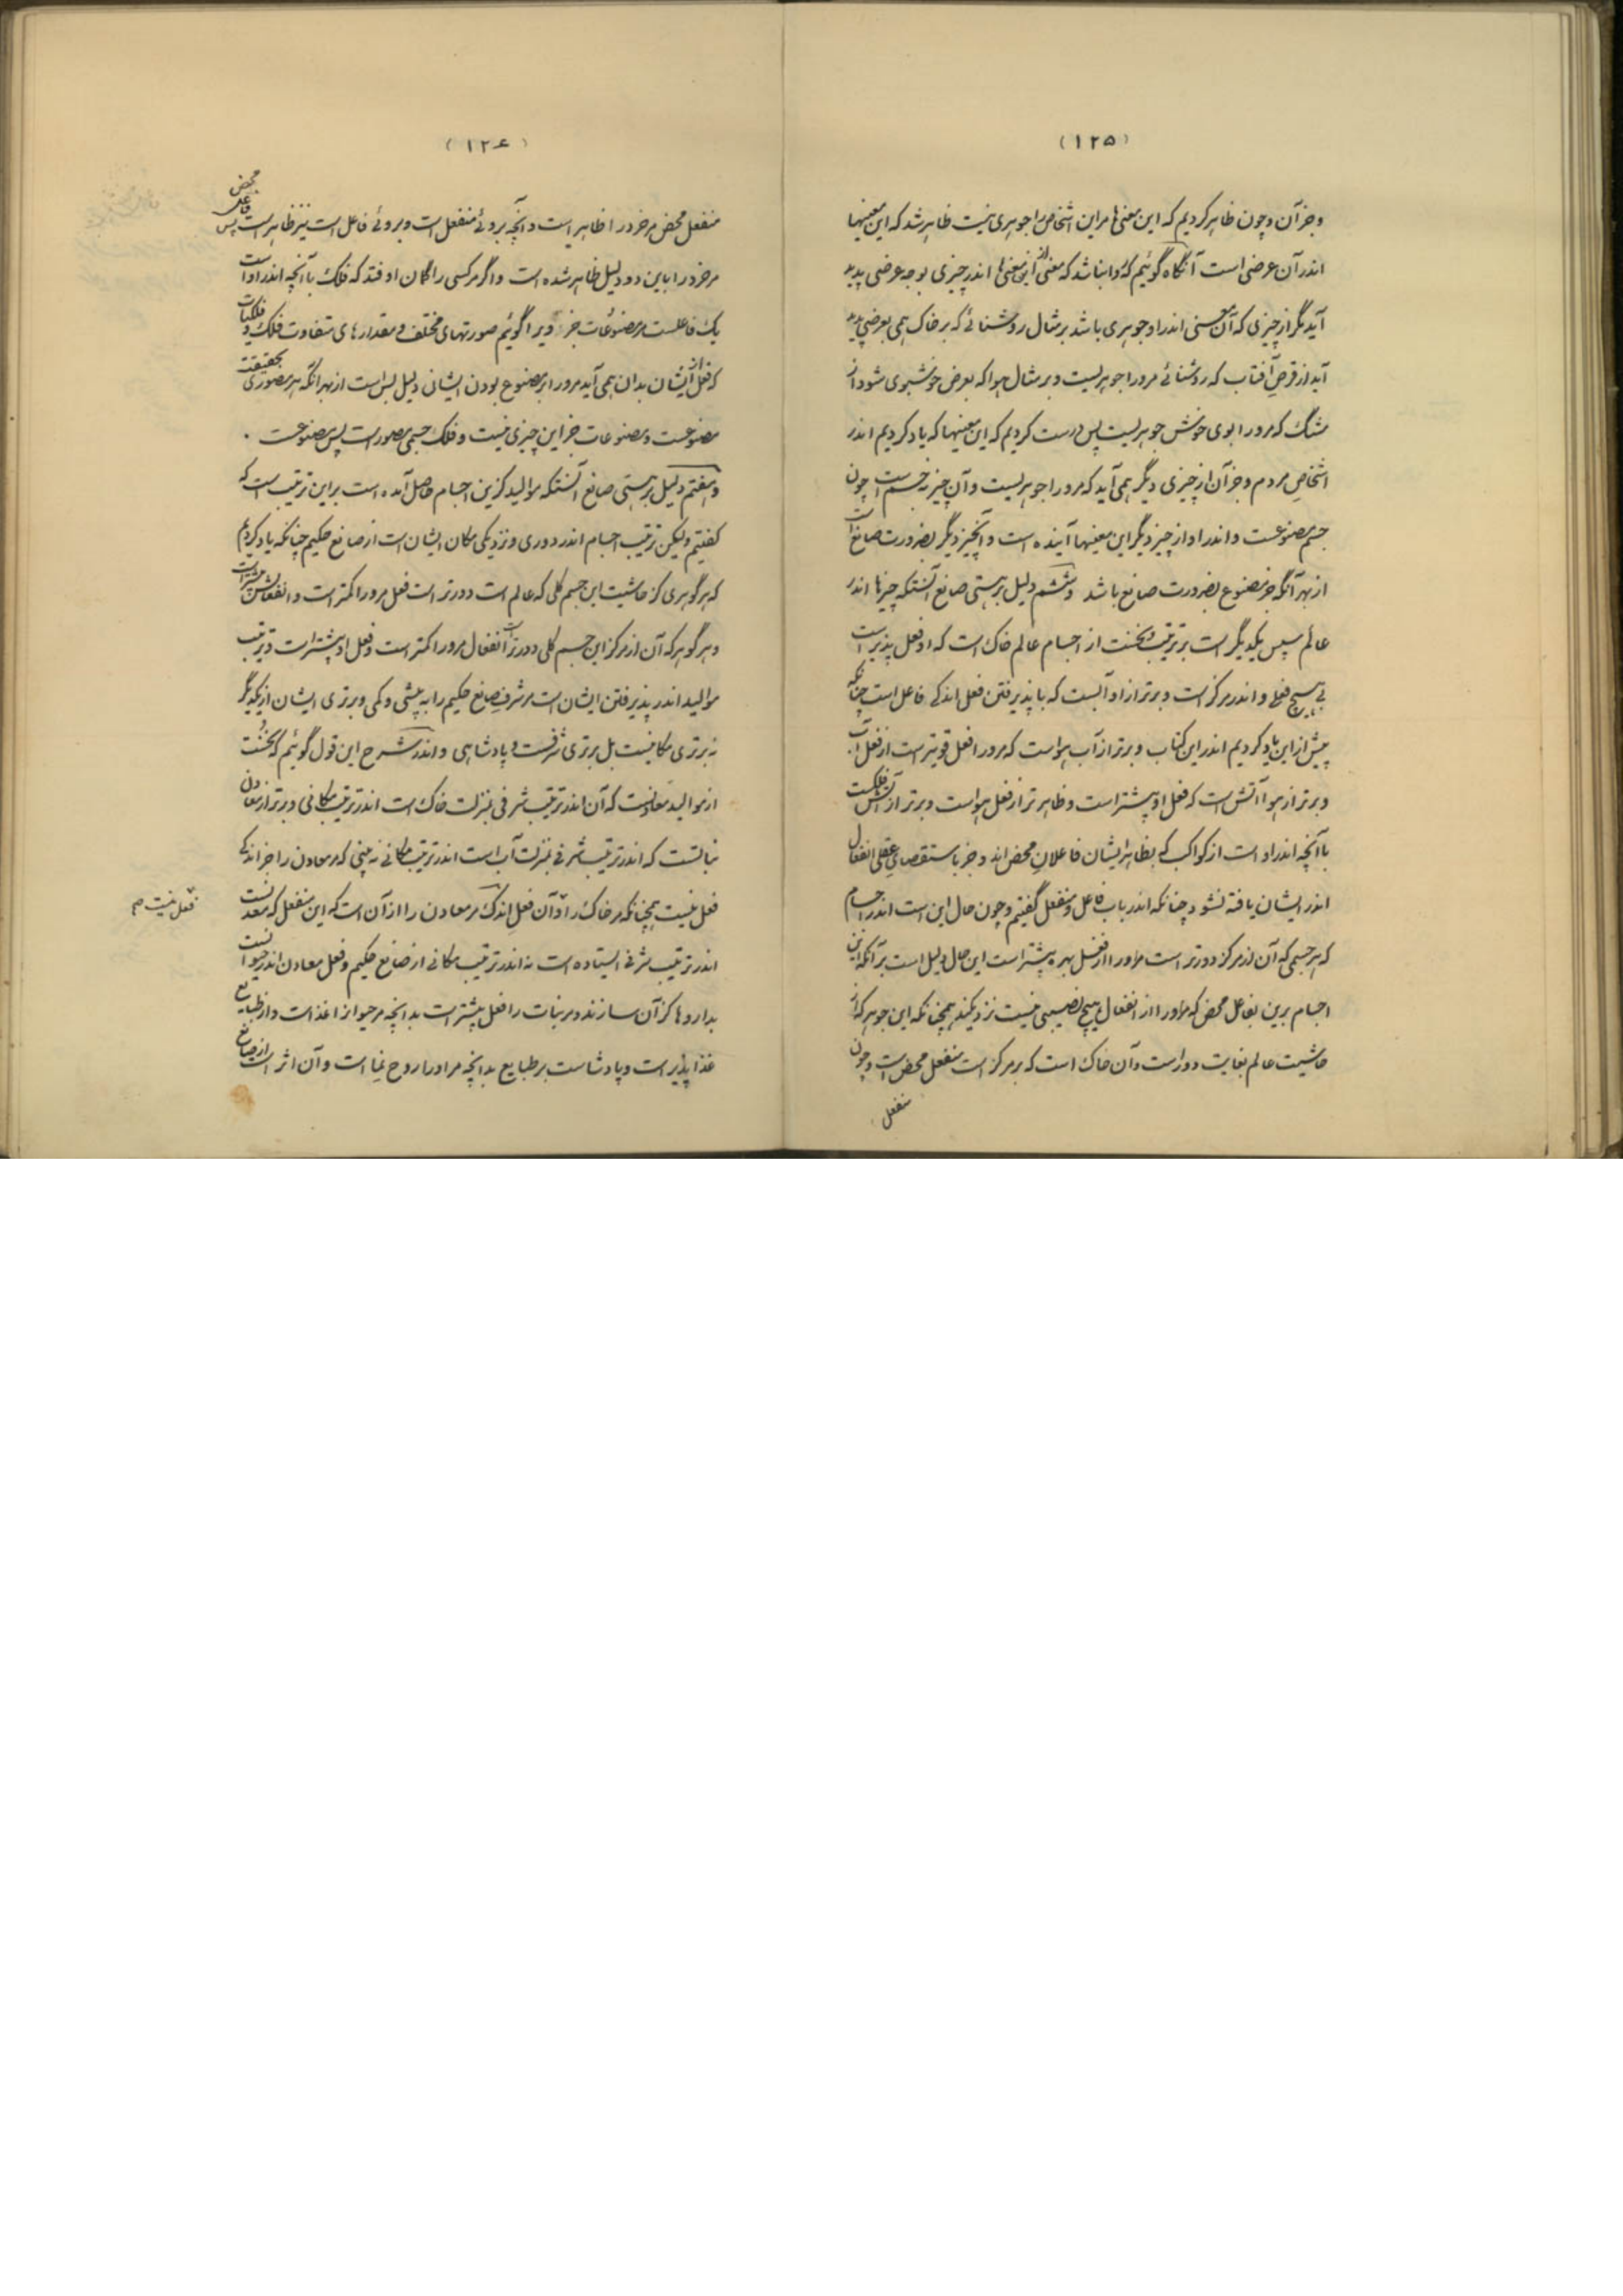 (۱۲۵)
وجز آن وچون ظاهر کردیم که این معنی‌ها مر این اشخاص را جوهری نیست ظاهر شد که این معنیها
اندر آن عرضی است آنگاه گوئیم که روا نباشد که معنی از این معنی‌ها اندر چیزی بوجه عرضی پدید
آید مگر از چیزی که آن معنی اندر او جوهری باشد بر مثال روشنائی که بر خاک همی بعرض پدید
آید از قرص آفتاب که روشنائی مرورا جوهریست و بر مثال هوا که بعرض خوشبوی شود از
مشک که مرورا بوی خوش جوهریست پس درست کردیم که این معنیها که یاد کردیم اندر
اشخاص مردم وجز آن از چیزی دیگر همی آید که مرورا جوهریست وآن چیز نه جسم است چون
جسم مصنوعست واندر او از چیز دیگر این معنیها آینده است وآنچیز دیگر بضرورت صانع است
از بهر آنکه جز مصنوع بضرورت صانع باشد وششم دلیل بر هستی صانع آنستکه چیزها اندر
عالم سپس یکدیگر است بر ترتیب ونخست از اجسام عالم خاک است که او فعل پذیر است
بی هیچ فعلی واندر مرکز است وبرتر از او آبست که با پذیرفتن فعل اندکی فاعل است چنانکه
پیش از این یاد کردیم اندر این کتاب وبرتر از آب هواست که مرورا فعل قویتر است از فعل آب
وبرتر از هوا آتش است که فعل او بیشتر است وظاهر تر از فعل هواست وبرتر از آتش فلکست
با آنچه اندر او است از کواکب که بظاهر ایشان فاعلان محض اند وجز باستقصای عقلی انفعال
اندر ایشان یافته نشود چنانکه اندر باب فاعل ومنفعل گفتیم وچون حال این است اندر اجسام
که هر جسمی که آن از مرکز دورتر است مر اورا از فعل بهره بیشتر است این حال دلیل است بر آنکه این
اجسام برین بفاعل محض که مر اورا از انفعال هیچ نصیبی نیست نزدیکند همچنانکه این جوهر که از
حاشیت عالم بغایت دور است وآن خاک است که بر مرکز است منفعل محض است وچون
منفعل
(۱۲۶)
منفعل محض مر خرد را ظاهر است وآنچه بروئی منفعل است وبروئی فاعل است نیز ظاهر است پس فاعل محض
مر خرد را باین دو دلیل ظاهر شده است واگر مر کسی را گمان اوفتد که فلک با آنچه اندر او است
یک فاعلست مر مصنوعات جز ویرا گوئیم صورتهای مختلف ومقدارهای متفاوت فلک وفلکیات
که فعل از ایشان بدان همی آید مرورا بر مصنوع بودن ایشان دلیل بس است از بهر آنکه هر مصوری بحقیقت
مصنوعست ومصنوعات جز این چیزی نیست وفلک جسمی مصور است پس مصنوعست .
وهفتم دلیل بر هستی صانع آنستکه موالید کزین اجسام حاصل آمده است بر این ترتیب است که
گفتیم ولیکن ترتیب اجسام اندر دوری ونزدیکی مکان ایشان است از صانع حکیم چنانکه یاد کردیم
که هر گوهری کز حاشیت این جسم کلی که عالم است دورتر است فعل مرورا کمتر است وانفعالش بیشتر است
وهر گوهر که آن از مرکز این جسم کلی دورتر است انفعال مرورا کمتر است وفعل او بیشتر است وترتیب
موالید اندر پذیرفتن ایشان است مر شرف صانع حکیم را به بیشی وکمی وبرتری ایشان از یکدیگر
نه برتری مکانیست بل برتری شرفست وپادشاهی واندر شرح این قول گوئیم که نخست
از موالید معادنست که آن اندر ترتیب شرفی بمنزلت خاک است اندر ترتیب مکانی وبرتر از معادن
نباتست که اندر ترتیب شرفی بمنزلت آب است اندر ترتیب مکانی نه بینی که مر معادن را جز اندکی
فعل نیست همچنانکه مر خاک را وآن فعل اندک مر معادن را از آن است که این منفعل که معدنست
اندر ترتیب شرفی ایستاده است نه اندر ترتیب مکانی از صانع حکیم وفعل معادن اندر حیوانست
بداروها کز آن سازند ومر نبات را فعل بیشتر است بدانچه مر حیوانرا غذاست واز طبایع
غذا پذیر است وپادشاست بر طبایع بدانچه مر اورا روح نما است وآن اثر است از صانع
فعل نیست م